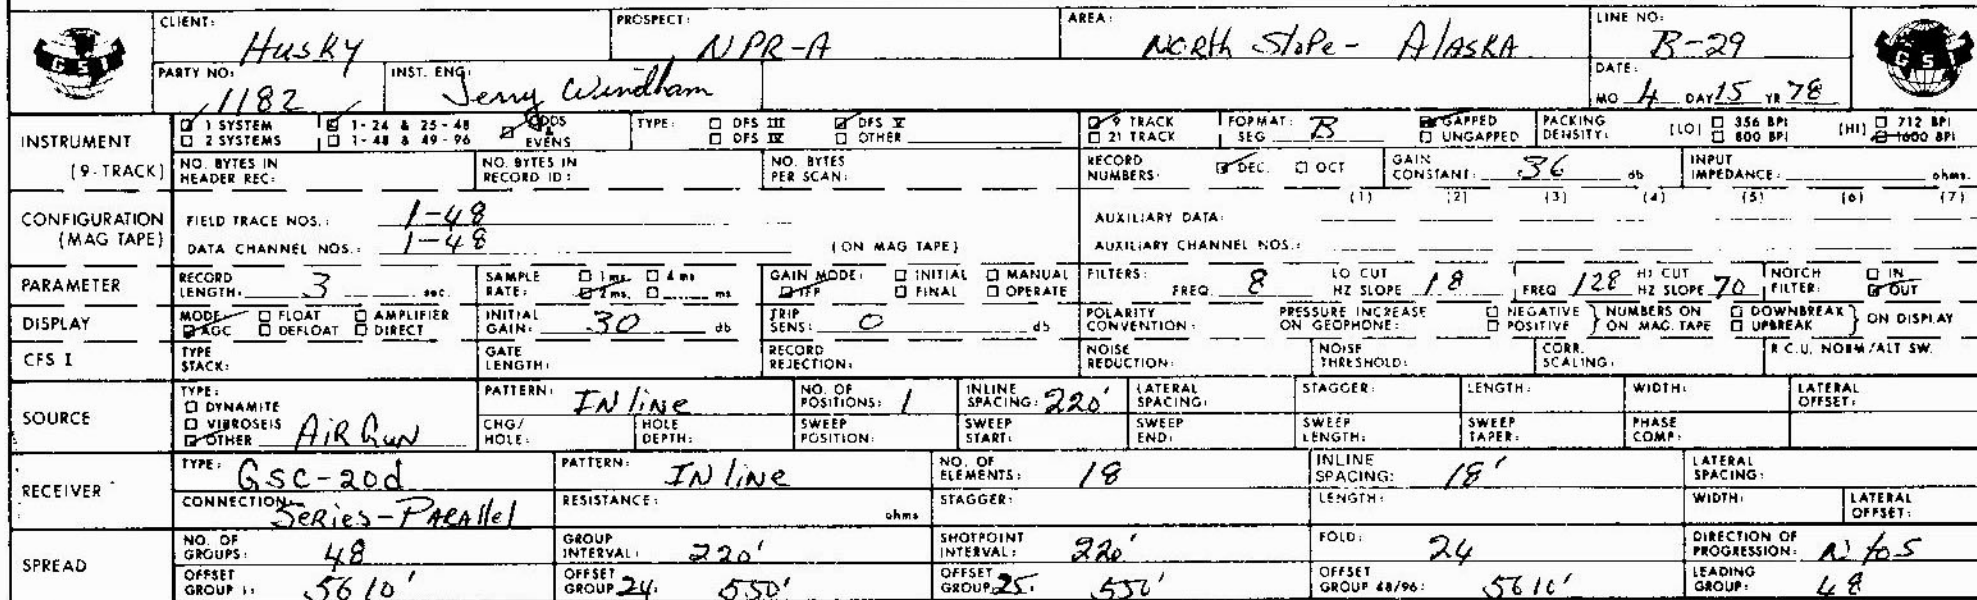 CLIENT: Husky PROSPECT: NPR-A AREA: North Slope - Alaska LINE NO: B-29
GSI GSI
PARTY NO: 1182 INST. ENG: Jerry Windham DATE: MO 4 DAY 15 YR 78
INSTRUMENT (9-TRACK)
☑ 1 SYSTEM ☑ 1-24 & 25-48 ☑ ODDS & EVENS TYPE: ☐ DFS III ☑ DFS V ☑ 9 TRACK FORMAT: SEG B ☑ GAPPED PACKING DENSITY: [LO] ☐ 356 BPI [HI] ☐ 712 BPI
☐ 2 SYSTEMS ☐ 1-48 & 49-96 ☐ DFS IV ☐ OTHER ☐ 21 TRACK ☐ UNGAPPED ☐ 800 BPI ☑ 1600 BPI
NO. BYTES IN HEADER REC: NO. BYTES IN RECORD ID: NO. BYTES PER SCAN: RECORD NUMBERS: ☑ DEC. ☐ OCT GAIN CONSTANT: 36 db INPUT IMPEDANCE: ohms.
CONFIGURATION (MAG TAPE)
FIELD TRACE NOS.: 1-48 AUXILIARY DATA: (1) (2) (3) (4) (5) (6) (7)
DATA CHANNEL NOS.: 1-48 (ON MAG TAPE) AUXILIARY CHANNEL NOS.:
PARAMETER RECORD LENGTH: 3 sec. SAMPLE RATE: ☐ 1 ms. ☐ 4 ms ☑ 2 ms. ☐ ms GAIN MODE: ☐ INITIAL ☐ MANUAL ☑ IFP ☐ FINAL ☐ OPERATE FILTERS: FREQ 8 LO CUT HZ SLOPE 18 FREQ 128 HI CUT HZ SLOPE 70 NOTCH FILTER: ☐ IN ☑ OUT
DISPLAY MODE ☐ FLOAT ☐ AMPLIFIER ☑ AGC ☐ DEFLOAT ☐ DIRECT INITIAL GAIN: 30 db TRIP SENS: 0 db POLARITY CONVENTION: PRESSURE INCREASE ON GEOPHONE: ☐ NEGATIVE ☐ POSITIVE } NUMBERS ON MAG. TAPE ☐ DOWNBREAK ☐ UPBREAK } ON DISPLAY
CFS I TYPE STACK: GATE LENGTH: RECORD REJECTION: NOISE REDUCTION: NOISE THRESHOLD: CORR. SCALING: R.C.U. NORM/ALT SW.
SOURCE
TYPE: ☐ DYNAMITE ☐ VIBROSEIS ☑ OTHER Air Gun
PATTERN: INline NO. OF POSITIONS: 1 INLINE SPACING: 220' LATERAL SPACING: STAGGER: LENGTH: WIDTH: LATERAL OFFSET:
CHG/HOLE: HOLE DEPTH: SWEEP POSITION: SWEEP START: SWEEP END: SWEEP LENGTH: SWEEP TAPER: PHASE COMP:
RECEIVER
TYPE: GSC-20d PATTERN: INline NO. OF ELEMENTS: 18 INLINE SPACING: 18' LATERAL SPACING:
CONNECTION: Series-Parallel RESISTANCE: ohms STAGGER: LENGTH: WIDTH: LATERAL OFFSET:
SPREAD
NO. OF GROUPS: 48 GROUP INTERVAL: 220' SHOTPOINT INTERVAL: 220' FOLD: 24 DIRECTION OF PROGRESSION: N to S
OFFSET GROUP 1: 5610' OFFSET GROUP 24: 550' OFFSET GROUP 25: 550' OFFSET GROUP 48/96: 5610' LEADING GROUP: 48